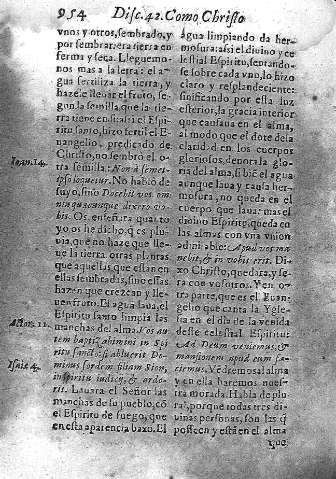 954 Disc. 42. Como Christo
vnos y otros, sembrado, y
por sembrar, era tierra en
ferma y seca. Lleguemo
nos mas a la letra: el a
gua fertiliza la tierra, y
haze le lleuar el fruto, se
gun la semilla, que la tie
rra tiene en si: assi el Espi
ritu santo, hizo fertil el E-
uangelio, predicado de
Christo, no sembró el o
Ioan. 14.
tra semilla: Non à semet-
ipso loquetur. No habló de
suyo, sino Docebit vos om
nia quæcunque dixero vo
bis. Os enseñara quanto
yo os he dicho, q es plu-
uia, que no haze que lle-
ue la tierra otras plantas
que aquellas que estan en
ellas sembradas, sino estas
hazen que crezcan y lle
uen fruto. El agua laua, el
Espiritu santo limpia las
Actor. 11.
manchas del alma. Vos au
tem baptizabimini in Spi
ritu sancto: si abluerit Do-
Isaiæ 4.
minus sordem filiarum Sion,
in spiritu iudicij, & ardo-
ris. Lauara el Señor las
manchas de su pueblo, cõ
el Espiritu de fuego, que
en esta apariencia baxó. El
agua limpiando da her-
mosura: assi el diuino y ce
lestial Espiritu, sentando-
se sobre cada vno, lo hizo
claro y resplandeciente:
sinificando por esta luz
esterior, la gracia interior
que causaua en el alma,
al modo que el dote de la
claridad en los cuerpos
gloriosos, denota la glo-
ria del alma, si bié el agua
aunque laua y causa her-
mosura, no queda en el
cuerpo que laua: mas el
diuino Espiritu, queda en
las almas con vna vnion
admirable: Apud vos ma
nebit, & in vobis erit. Di-
xo Christo, quedara, y se-
ra con vosotros. Y en o-
tra parte, que es el Euan-
gelio que canta la Ygle-
sia en el dia de la venida
deste celestial Espiritu:
Ad Deum veniemus, &
mansionem apud eum fa-
ciemus. Vedremos al alma
y en ella haremos nues-
tra morada. Habla de plu-
ral, porque todas tres di-
uinas personas, son las q̃
posseen y están en el alma
que